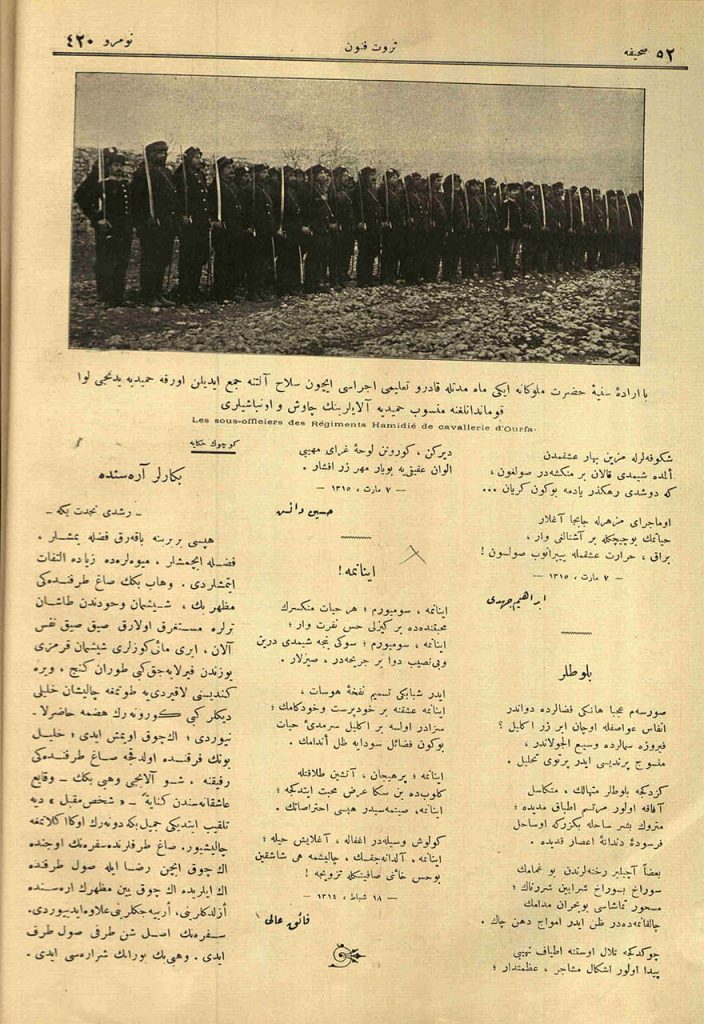 صحیفه ٥٢
ثروت فنون
نومرو ٤٢٠
با ارادهٔ سنیهٔ حضرت ملوکانه ایکی ماه مدتله قادرو تعلیمی اجراسی ایچون سلاح آلتنه جمع ایدیلن اورفه حمیدیه یدنجی لوا
قوماندانلغنه منسوب حمیدیه آلایلرینك چاوش و اونباشیلری
Les sous-officiers des Régiments Hamidié de cavallerie d'Ourfa.
شکوفه‌لرله مزین بهار عشقمدن
ألمده شیمدی قالان بر منکشه‌در صولغون ،
که دوشدی رهکذر یادمه بوکون کریان ...
اوماجرای مزهرله جابجا آغلار
حیاتمك بوچیچکله بر آشنالغی وار ،
براق ، حرارت عشقمله بیرانوب صولسون !
— ٧ مارت ، ١٣١٥ —
ابراهیم جهدی
بلوطلر
صورسه‌م عجبا هانکی فضالرده دواندر
انفاس عواصفله اوچان ابر زر اکلیل ؟
فیروزهٔ سمالرده وسیع الجولاندر ،
منسوج پرندیسی ایدر پرتوی تحلیل .
کزدکجه بلوطلر متهالك ، متکاسل
آفاقه اولور مرتسم اطباق مدیده ؛
متروك بشر ساحله بکزرکه اوساحل
فرسودهٔ دندانهٔ اعصار قدیده .
بعضاً آچیلیر رخنه‌لرندن بو غمامك
سوراخ بسوراخ شرایین شررناك ؛
مسحور تماشاسی بوبحران مدامك
جالقانمه‌ده‌در ظن ایدر امواج دهن چاك .
چوکدکجه تلال اوستنه اطیاف
پیدا اولور اشکال مشاجر ، عظمتدار ؛
دیرکن ، کورونن لوحهٔ غرای مهیبی
الوان عقیق‌یه بویار مهر زر افشار .
— ٧ مارت ، ١٣١٥ —
حسین دانش
اینانمه !
اینانمه ، سومیورم ؛ هر حیات منکسرك
محبتنده‌ده بر کیزلی حس نفرت وار ؛
اینانمه ، سومیورم ؛ سوکی نجه شیمدی درین
وبی‌نصیب دوا بر جریحه‌در ، صیزلار .
ایدر شبابکی تسمیم نفخهٔ هوسات ،
اینانمه عشقنه بر خودپرست وخودکامك ؛
سزادر اولسه بر اکلیل سرمدیٔ حیات
بوکون فضائل سودایه ظل أندامك .
اینانمه ؛ پرهیجان ، آتشین طلاقتله
کلوب‌ده بن سکا عرض محبت ایتدکجه ؛
اینانمه، صیتمه‌سیدر هپسی احتراصاتك .
کولوش وسیله‌در اغفاله ، آغلایش حیله ؛
اینانمه . آلدانه‌جقسك . چالیشمه هی شاشقین
بوحس خائنی صافیتکله تزویجه !
— ١٨ شباط ، ١٣١٤ —
فائق عالی
کوچوك حکایه
بکارلر آره‌سنده
- رشدی نجدت بکه -
هپسی بربرینه باقه‌رق فضله یمشلر .
فضله ایچمشلر . میوه‌لره‌ده زیاده التفات
ایتمشلردی . وهاب بکك صاغ طرفنده‌کی
مظهر بك ، شیشمان وجودندن طاشان
ترلره مستغرق اولارق صیق صیق نفس
آلان ، ایری مائی کوزلری شیشمان قرمزی
یوزندن فیرلایه‌جق کبی طوران کنج ، ویره
کندیسنی لاقیردی‌یه طوتمغه چالیشان خلیلی
دیکلر کبی کورونه‌رك هضمه حاضرلا-
نیوردی ؛ اك‌چوق اویمش ایدی ؛ خلیل
بونك فرقنده اولدقجه صاغ طرفنده‌کی
رفیقنه ، شو آلایجی وهبی بکك – وقایع
عاشقانه‌سندن کنایةً – « شخص مقبل » دیه
تلقیب ایتدیکی جمیل بکه دونه‌رك اوکا آکلاتمغه
چالیشیور. صاغ طرفلرنده سفره‌نك اوجنده
اك چوق ایچن رضا ایله صول طرفنده
اك ایلریده اك چوق یین مظهرك آره‌سنده
أزلدکلرنی، أربیه‌جکلرنی علاوه ایدییوردی.
سفره‌نك اصل شن طرفی صول طرف
ایدی . وهبی‌بك بورانك شراره‌سی ایدی .